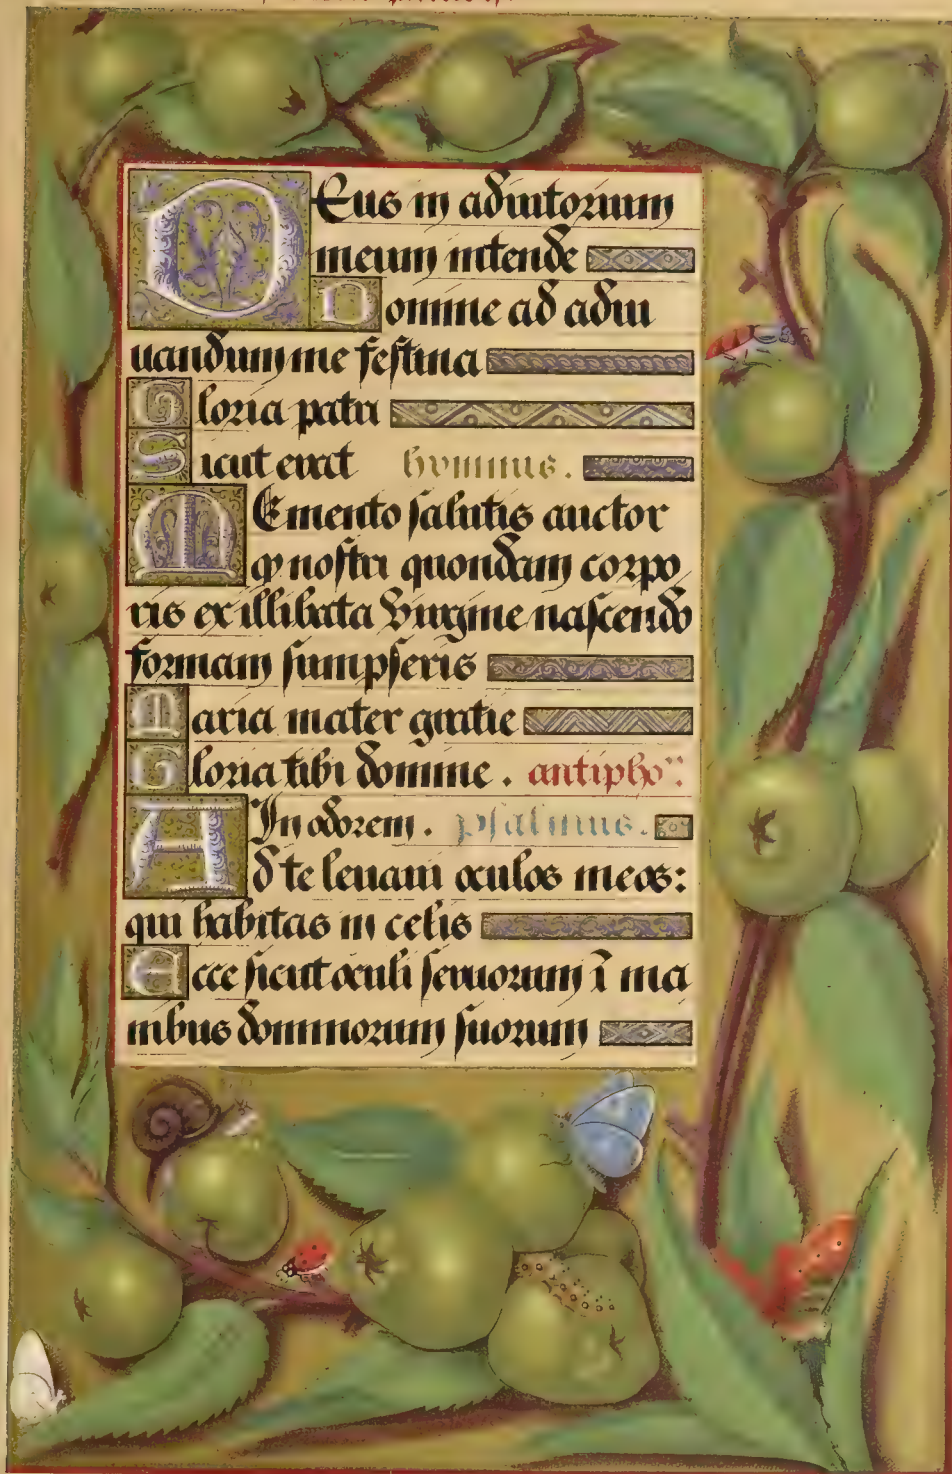 DEus in adiutorium
meum intende
Domine ad adiu
uandum me festina
Gloria patri
Sicut erat hymnus.
MEmento salutis auctor
qƺ nostri quondam corpo
ris ex illibata virgine nascendo
formam sumpseris
Maria mater gratie
Gloria tibi domine. antipho
In odorem. psalmus.
Ad te leuaui oculos meos:
qui habitas in celis
Ecce sicut oculi seruorum ī ma
nibus dominorum suorum